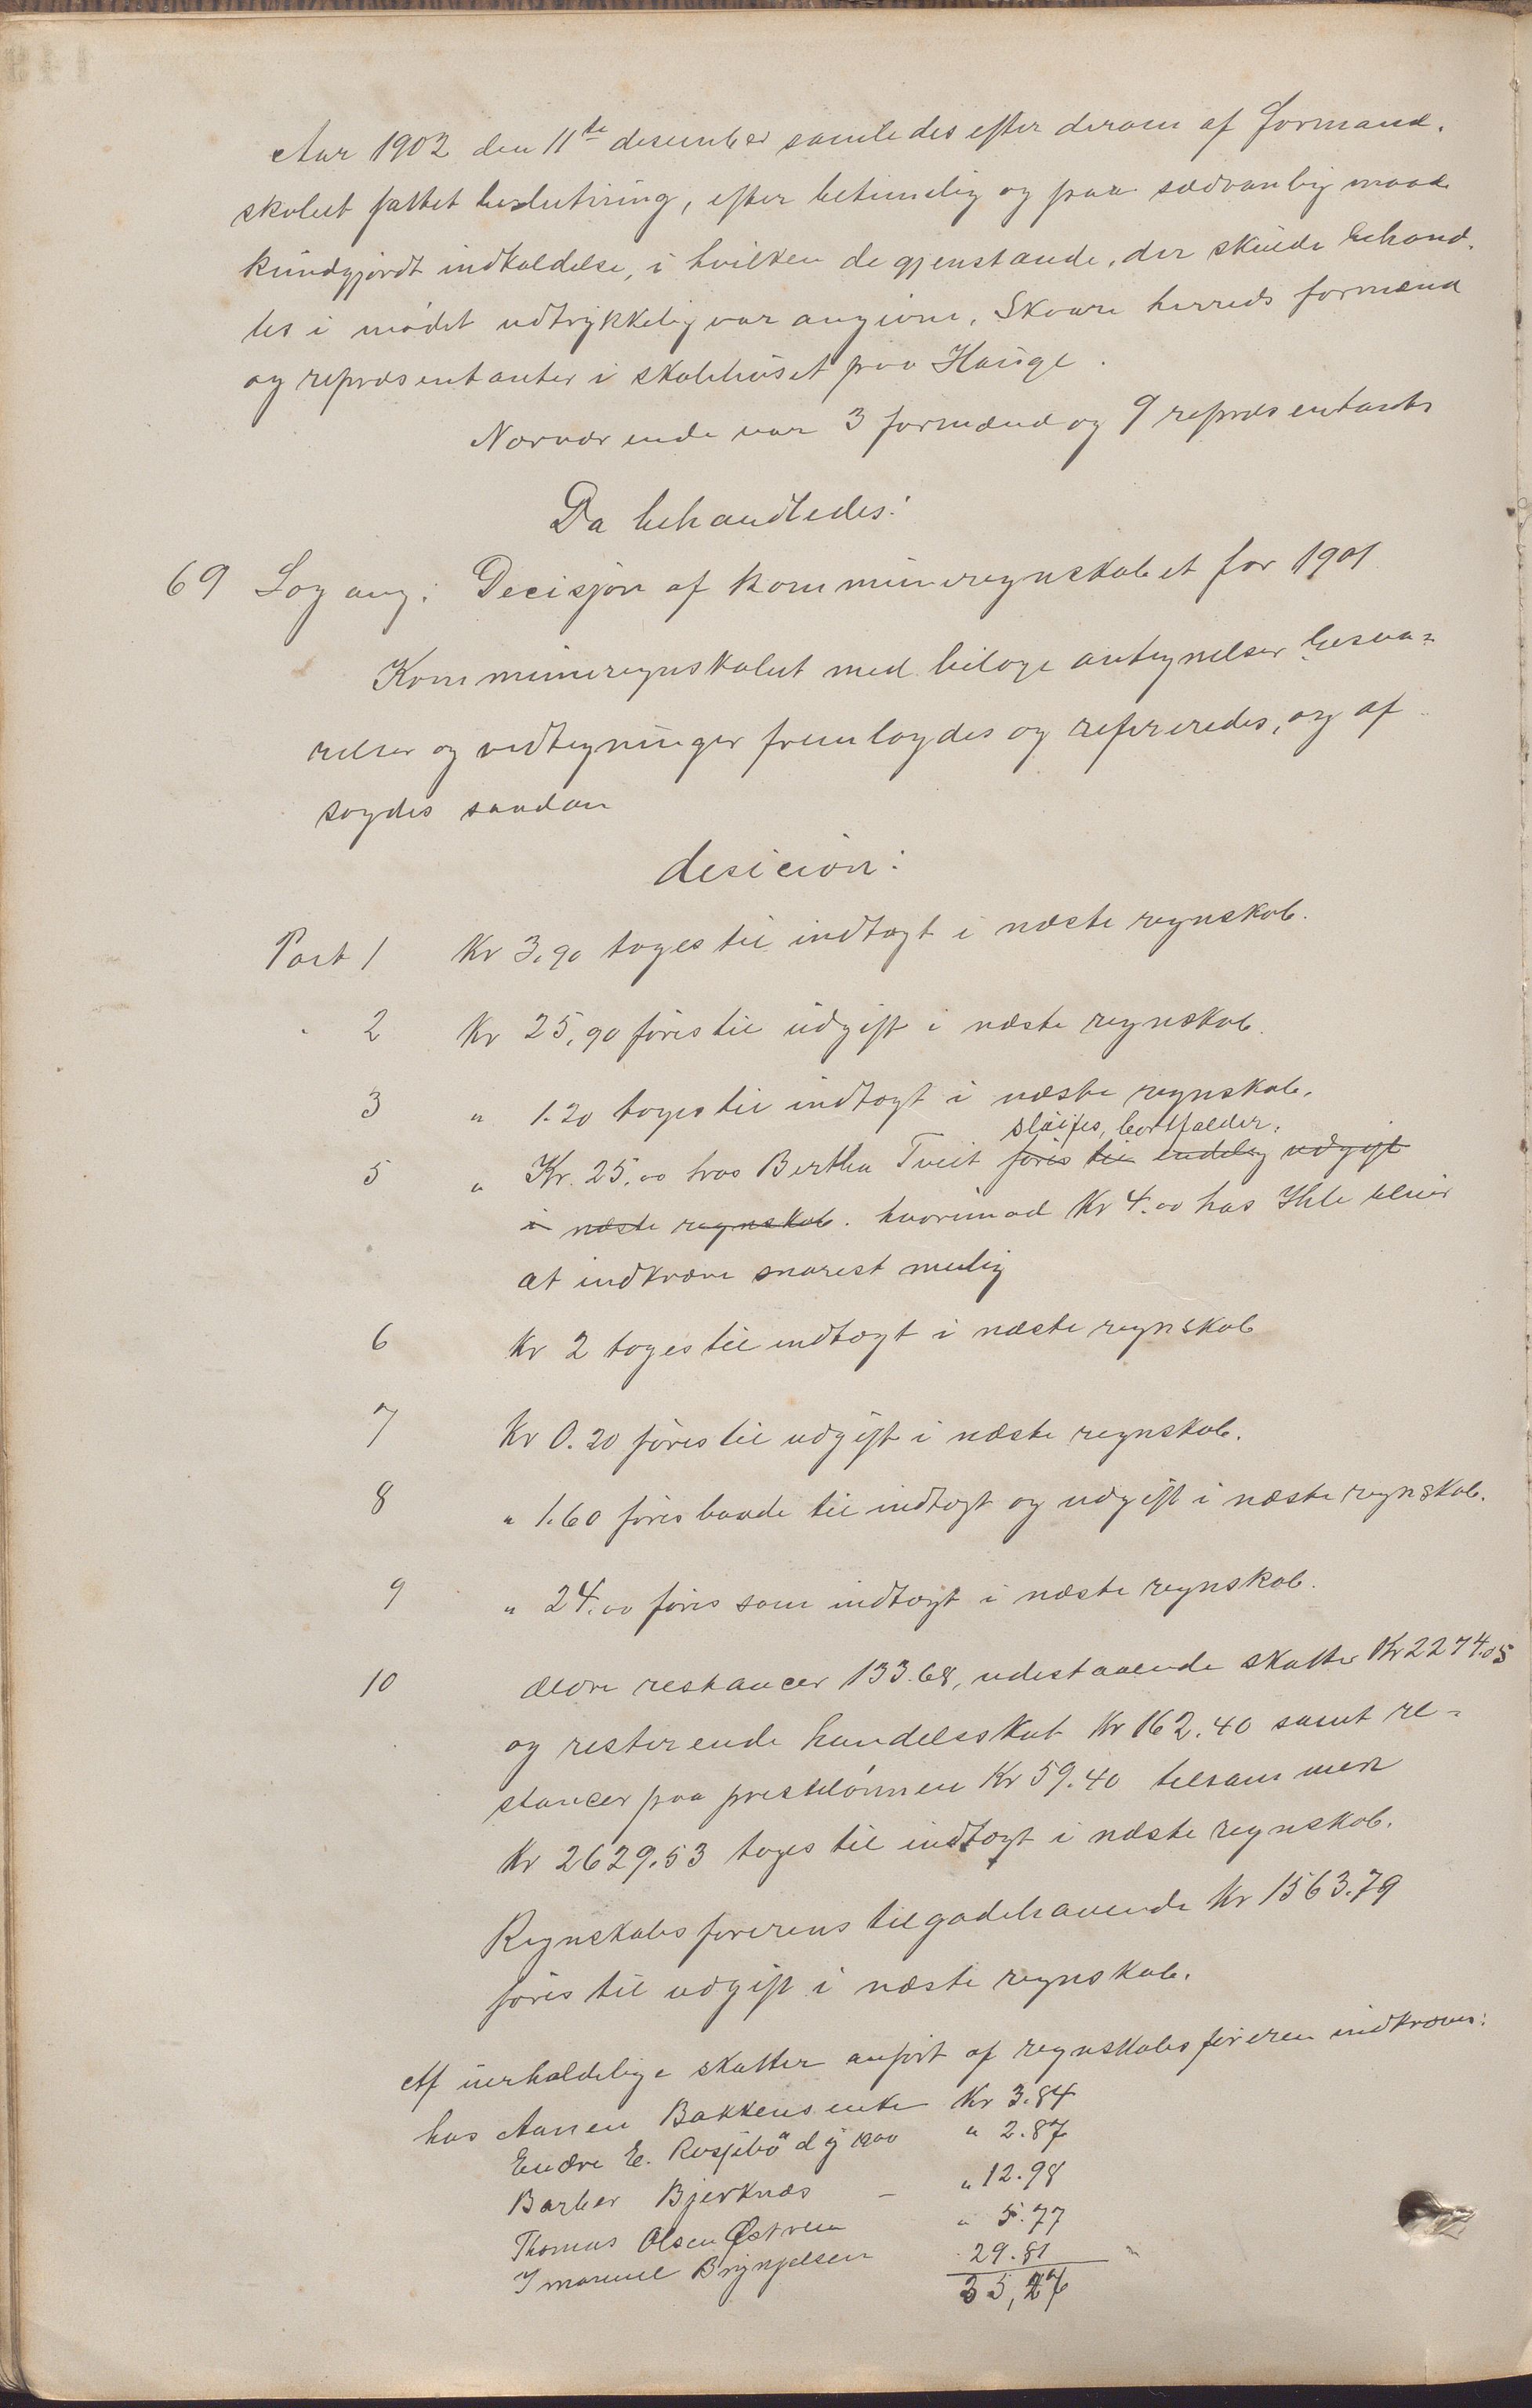 Aar 1902 den 11te desember samledes efter derom af formand-
skabet fattet beslutning, efter betimelig og paa sædvanlig maade
kundgjordt indkaldelse, i hvilken de gjenstande, der skulde behand-
les i mødet udtrykkelig var angivne, Skaare herreds formænd
og repræsentanter i skolehuset paa Hauge.
Nærværende var 3 formænd og 9 repræsentanter
Da behandledes:
69 Sag ang. Decisjon af kommuneregnskabet for 1901
Kommuneregnskabet med bilage antegnelser besva-
relser og vedtegninger fremlagdes og refereredes, og af
sagdes saadan
desicion:
Post 1 Kr 3,90 tages til indtægt i næste regnskab.
" 2 Kr 25,90 føres til udgift i næste regnskab.
3 " 1.20 tages til indtægt i næste regnskab.
sløifes, bortfalder,
5 " Kr. 25.00 hos Bertha Tveit føres til endelig udgift
i næste regnskab. hvorimod Kr 4.00 hos Ihle bliver
at indkræve snarest mulig
6 Kr 2 tages til indtægt i næste regnskab
7 Kr 0.20 føres til udgift i næste regnskab.
8 " 1.60 føres baade til indtægt og udgift i næste regnskab.
9 " 24.00 føres som indtægt i næste regnskab.
10 ældre restancer 133.68, udestaaende skatter Kr 2274.05
og resterende handelsskat Kr 162.40 samt re-
stancer paa prestelønnen Kr 59.40 tilsammen
Kr 2629.53 tages til indtægt i næste regnskab.
Regnskabsførerens tilgodehavende Kr 1563.79
føres til udgift i næste regnskab.
Af uerholdelige skatter anført af regnskabsføreren indkræves:
hos Aanen Bakkens enke Kr 3.84
Endre E. 1900 " 2.87
Barber Bjerknæs – " 12.98
Thomas Olsen Østrem " 5.77
Imanuel Brynjelsen 29.81
35,27